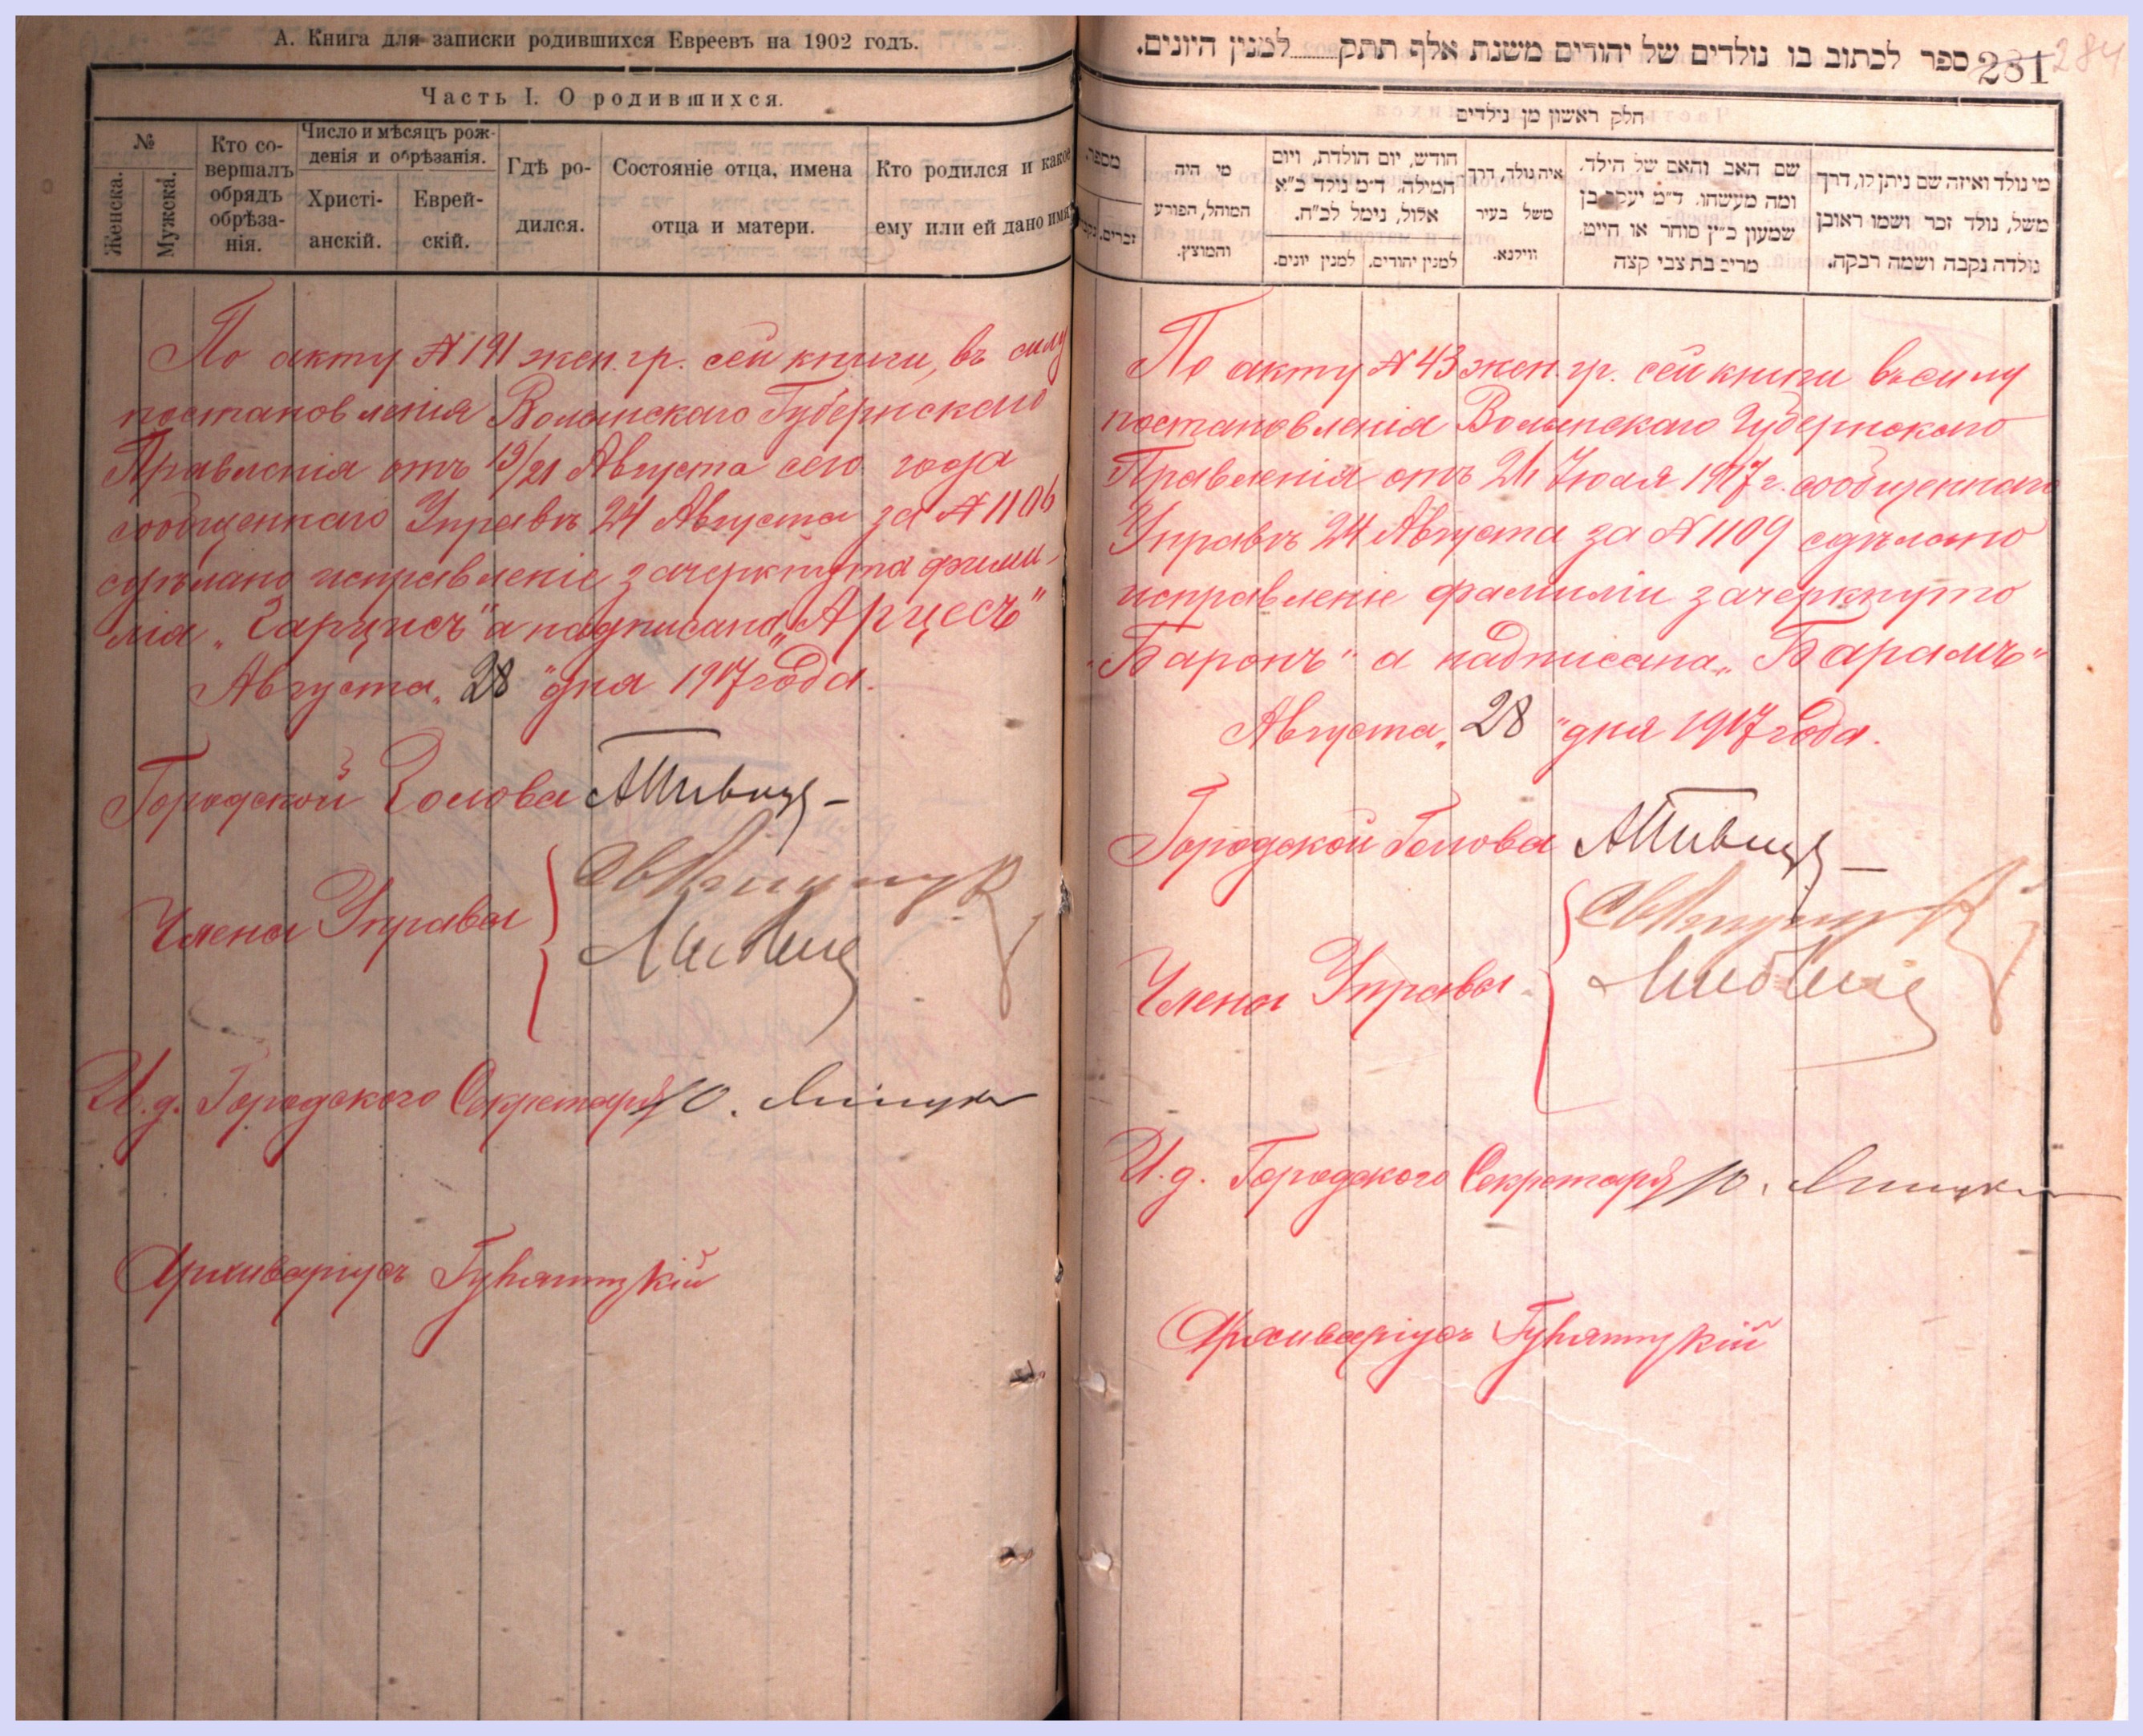 А. Книга для записки родившихся Евреевъ на 1902 годъ.
Часть I. О родившихся.
№
Женска.
Мужска.
Кто со-
вершалъ
обрядъ
обрѣза-
нія.
Число и мѣсяцъ рож-
денія и обрѣзанія.
Христі-
анскій.
Еврей-
скій.
Гдѣ ро-
дился.
Состояніе отца, имена
отца и матери.
Кто родился и какое
ему или ей дано имя
По акту № 191 жен. гр. сей книги, въ силу
постановленія Волынскаго Губернскаго
Правленія отъ 19/21 Августа сего года
сообщеннаго Управѣ 24 Августа за № 1106
сдѣлано исправленіе зачеркнута фами-
лія „Гарцисъ" а надписана „Арцесъ"
Августа „28" дня 1917 года.
Городской Голова
Члены Управы
И. д. Городского Секретаря Ю.
Архиваріусъ
ספר לכתוב בו נולדים של יהודים משנת אלף תתק........למנין היונים.
281 284
חלק ראשון מן נילדים
מספר.
זכרים.
מי היה
המוהל, הפורע
והמוצץ.
חודש, יום הולדת, ויום
המילה. ד״מ נולד כ״א
אלול, נימל לכ״ח.
למנין יונים.
למנין יהודים.
איה נולד, דרך
משל בעיר
ווילנא.
שם האב והאם של הילד.
ומה מעשהו. ד״מ יעקב בן
שמעון כ״ץ סוחר או חייט.
מרים בת צבי קצה
מי נולד ואיזה שם ניתן לו, דרך
משל, נולד זכר ושמו ראובן
נולדה נקבה ושמה רבקה.
По акту № 43 жен. гр. сей книги въ силу
постановленія Волынскаго Губернскаго
Правленія отъ 24 Іюля 1917 г. сообщеннаго
Управѣ 24 Августа за № 1109 сдѣлано
исправленіе фамиліи зачеркнуто
„Баронъ" а надписана „Барамъ"
Августа „28" дня 1917 года.
Городской Голова
Члены Управы
И. д. Городского Секретаря Ю.
Архиваріусъ